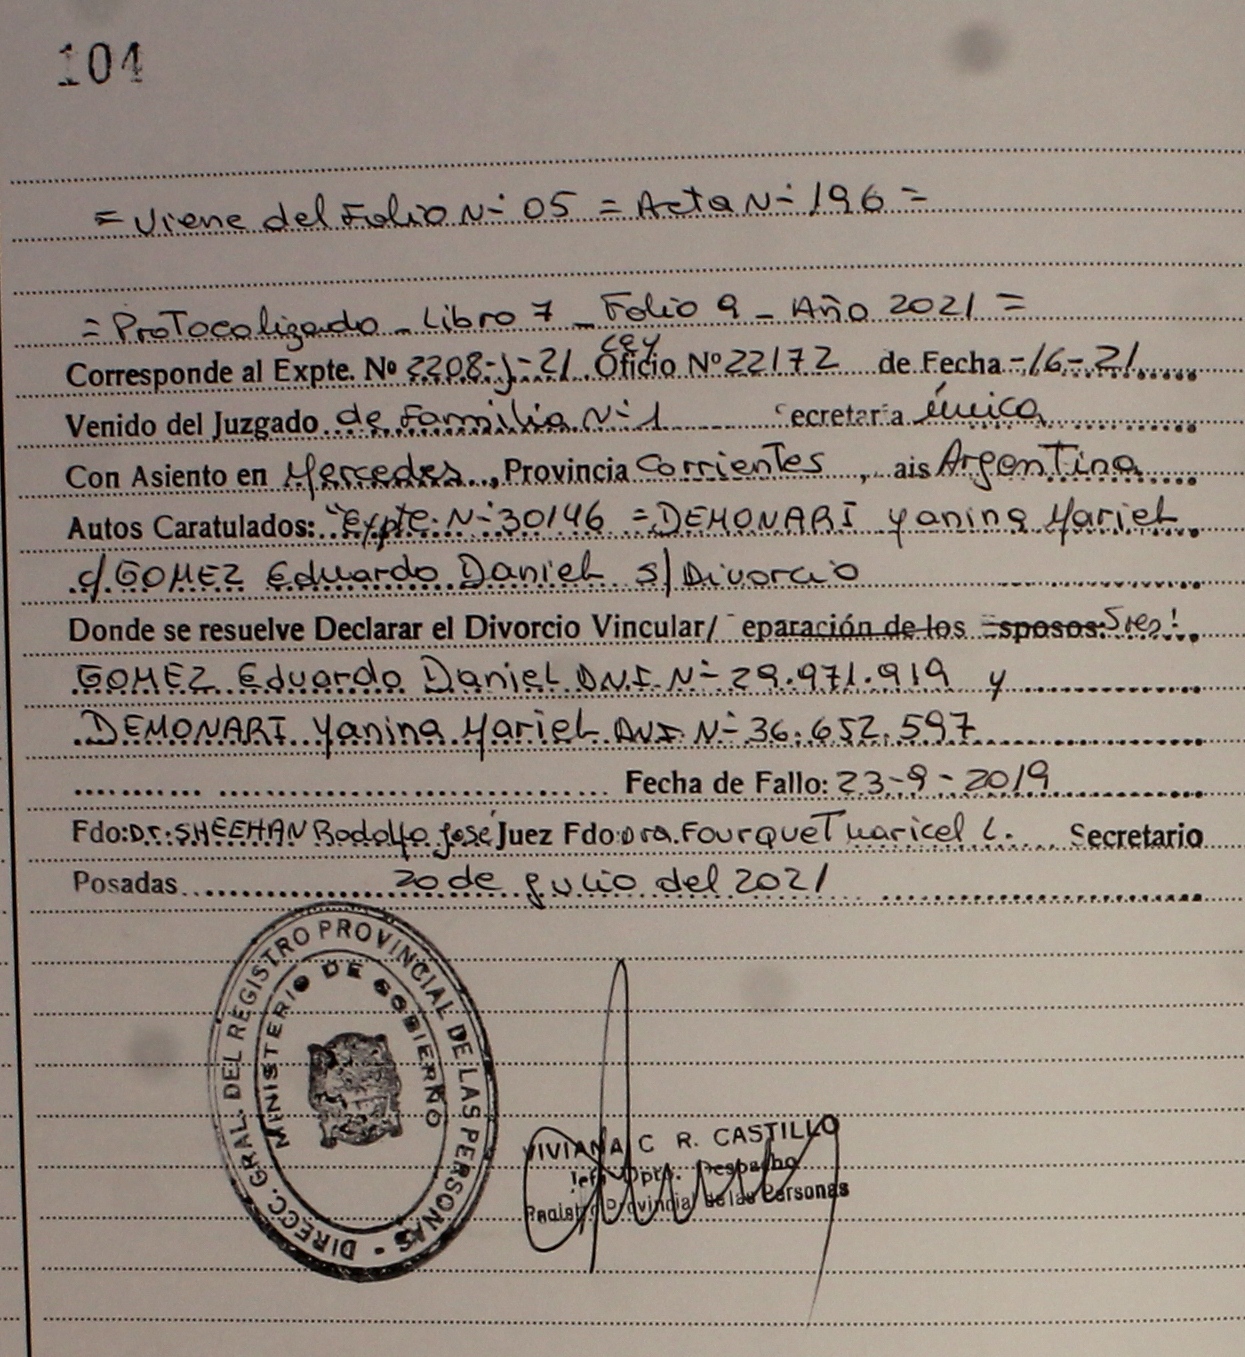 104
= Viene del Folio N° 05 = Acta N° 196 =
= Protocolizado - Libro 7 - Folio 9 - Año 2021 =
Ley
Corresponde al Expte. Nº 2208-J-21 Oficio Nº 22172 de Fecha -16-21
Venido del Juzgado de Familia N° 1 ecretaria única
Con Asiento en Mercedes, Provincia Corrientes, ais Argentina
Autos Caratulados: "Expte. N° 30146 = DEMONARI Yanina Mariel
c/ GOMEZ Eduardo Daniel s/ Divorcio
Donde se resuelve Declarar el Divorcio Vincular/ eparación de los sposos: Sres!
GOMEZ Eduardo Daniel D.N.I. N° 29.971.919 y
DEMONARI Yanina Mariel D.N.I. N° 36.652.597
Fecha de Fallo: 23-9-2019
Fdo: Dr. SHEEHAN Rodolfo José Juez Fdo: Dra. Fourquet Maricel L. Secretario
Posadas 20 de julio del 2021
DIRECC. GRAL. DEL REGISTRO PROVINCIAL DE LAS PERSONAS -
MINISTERIO DE GOBIERNO
VIVIANA C R. CASTILLO
Jefe Dpto. Despacho
Registro Provincial de las Personas